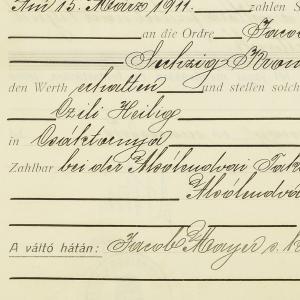 Am 15. März 1911. zahlen S
an die Ordre Jacob
Sechzig Kron
den Werth erhalten und stellen solch
Czili Heilig
in Csáktornya
Zahlbar bei der Alsólendvai Tak
Alsólendva
A váltó hátán: Jacob Mayer s. k.